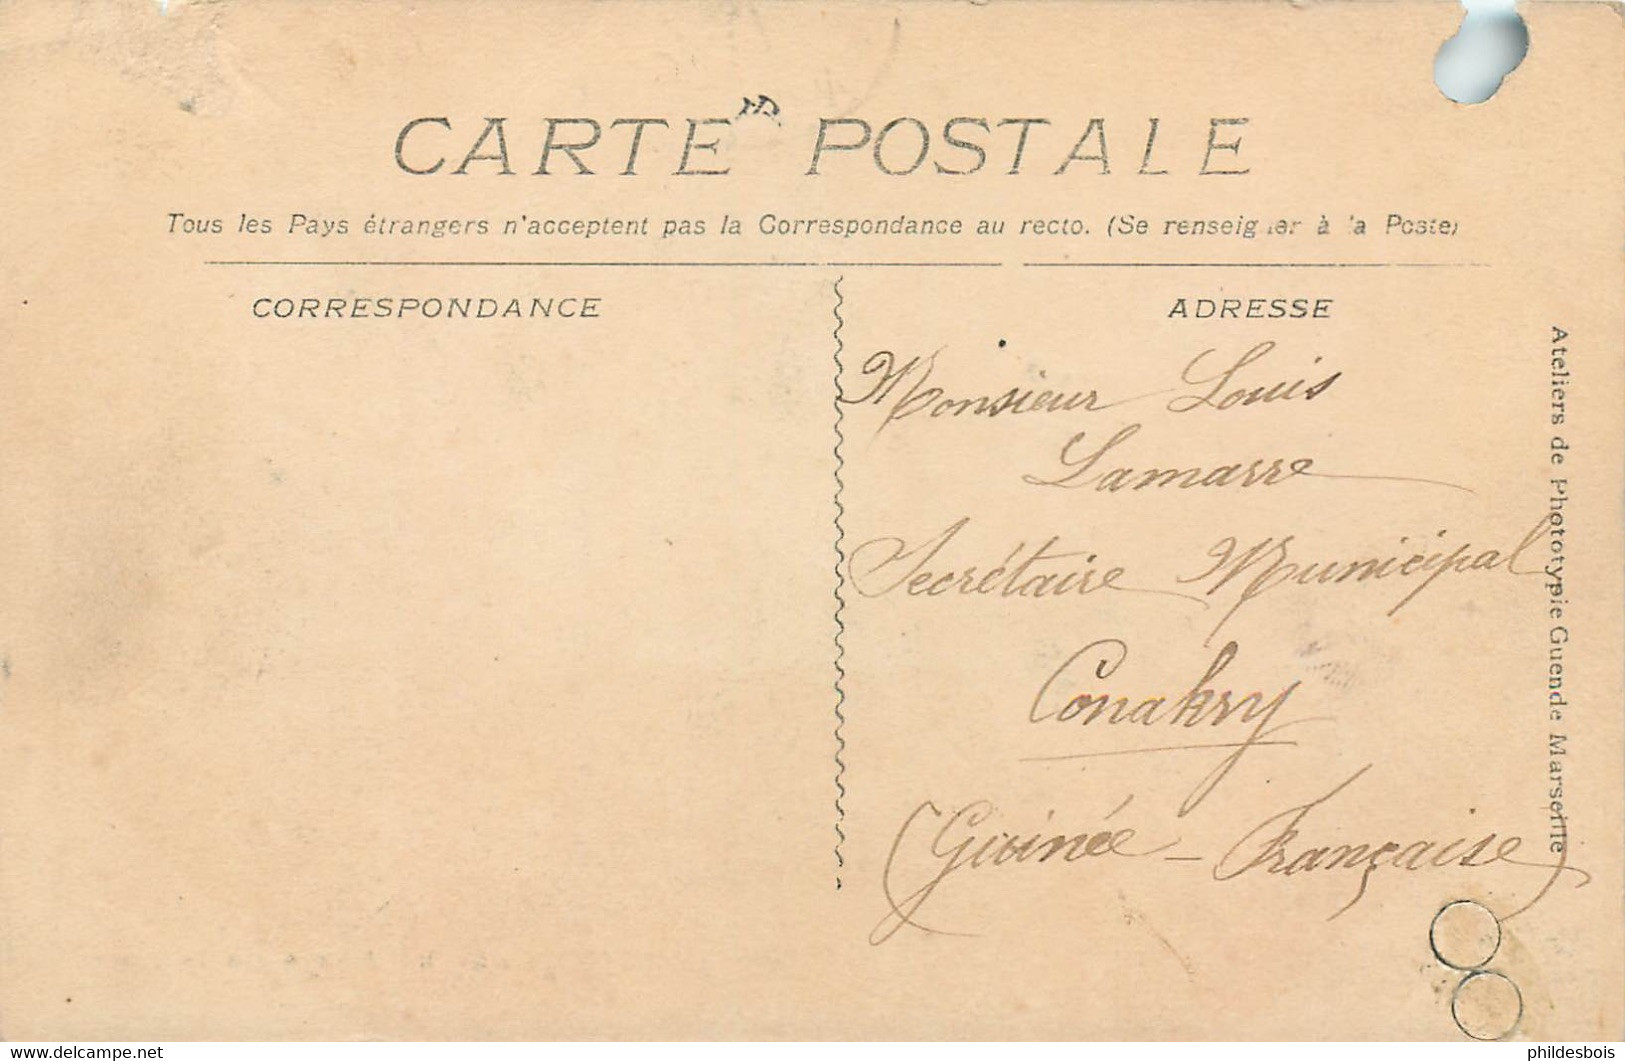 CARTE POSTALE
Tous les Pays étrangers n'acceptent pas la Correspondance au recto. (Se renseigner à la Poste)
CORRESPONDANCE
ADRESSE
Monsieur Louis
Lamarre
Secrétaire Municipal
Conakry
(Guinée - Française)
Ateliers de Phototypie Guende Marseille
www.delcampe.net
phildesbois